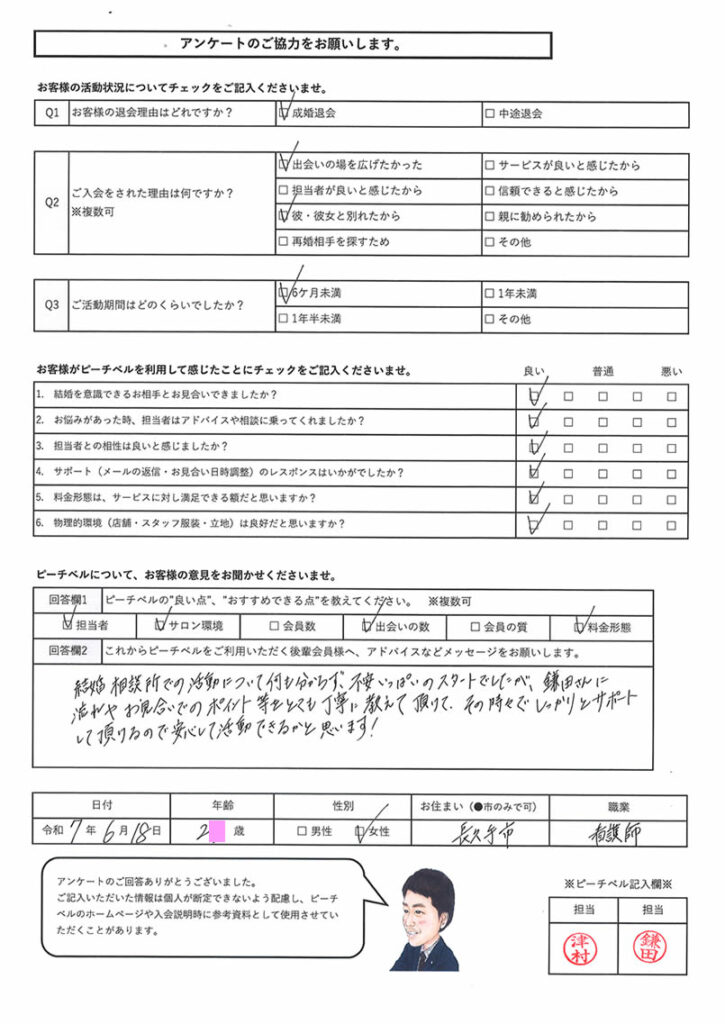 アンケートのご協力をお願いします。
お客様の活動状況についてチェックをご記入くださいませ。
Q1 お客様の退会理由はどれですか？ 成婚退会 中途退会
出会いの場を広げたかった サービスが良いと感じたから
Q2 ご入会をされた理由は何ですか？ ※複数可 担当者が良いと感じたから 信頼できると感じたから
彼・彼女と別れたから 親に勧められたから
再婚相手を探すため その他
Q3 ご活動期間はどのくらいでしたか？ 6ケ月未満 1年未満
1年半未満 その他
お客様がピーチベルを利用して感じたことにチェックをご記入くださいませ。 良い 普通 悪い
1. 結婚を意識できるお相手とお見合いできましたか？
2. お悩みがあった時、担当者はアドバイスや相談に乗ってくれましたか？
3. 担当者との相性は良いと感じましたか？
4. サポート（メールの返信・お見合い日時調整）のレスポンスはいかがでしたか？
5. 料金形態は、サービスに対し満足できる額だと思いますか？
6. 物理的環境（店舗・スタッフ服装・立地）は良好だと思いますか？
ピーチベルについて、お客様の意見をお聞かせくださいませ。
回答欄1 ピーチベルの"良い点"、"おすすめできる点"を教えてください。 ※複数可
担当者 サロン環境 会員数 出会いの数 会員の質 料金形態
回答欄2 これからピーチベルをご利用いただく後輩会員様へ、アドバイスなどメッセージをお願いします。
結婚相談所での活動について何も分からず、不安いっぱいのスタートでしたが、鎌田さんに
流れやお見合いでのポイント等をとても丁寧に教えて頂けて、その時々でしっかりとサポート
して頂けるので安心して活動できるかと思います！
日付 年齢 性別 お住まい（●市のみで可） 職業
令和7年6月18日 2 歳 男性 女性 長久手市 看護師
アンケートのご回答ありがとうございました。
ご記入いただいた情報は個人が断定できないよう配慮し、ピーチ
ベルのホームページや入会説明時に参考資料として使用させてい
ただくことがあります。
※ピーチベル記入欄※
担当 担当
津村 鎌田